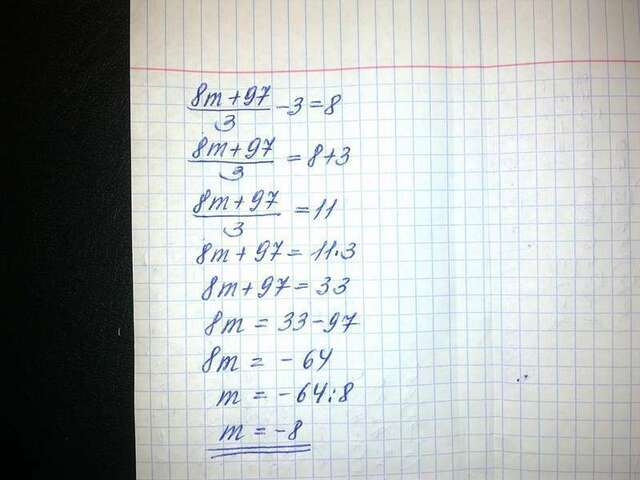 (8m+97)/3 -3=8
(8m+97)/3 = 8+3
(8m+97)/3 = 11
8m+97 = 11·3
8m+97 = 33
8m = 33-97
8m = -64
m = -64:8
m = -8